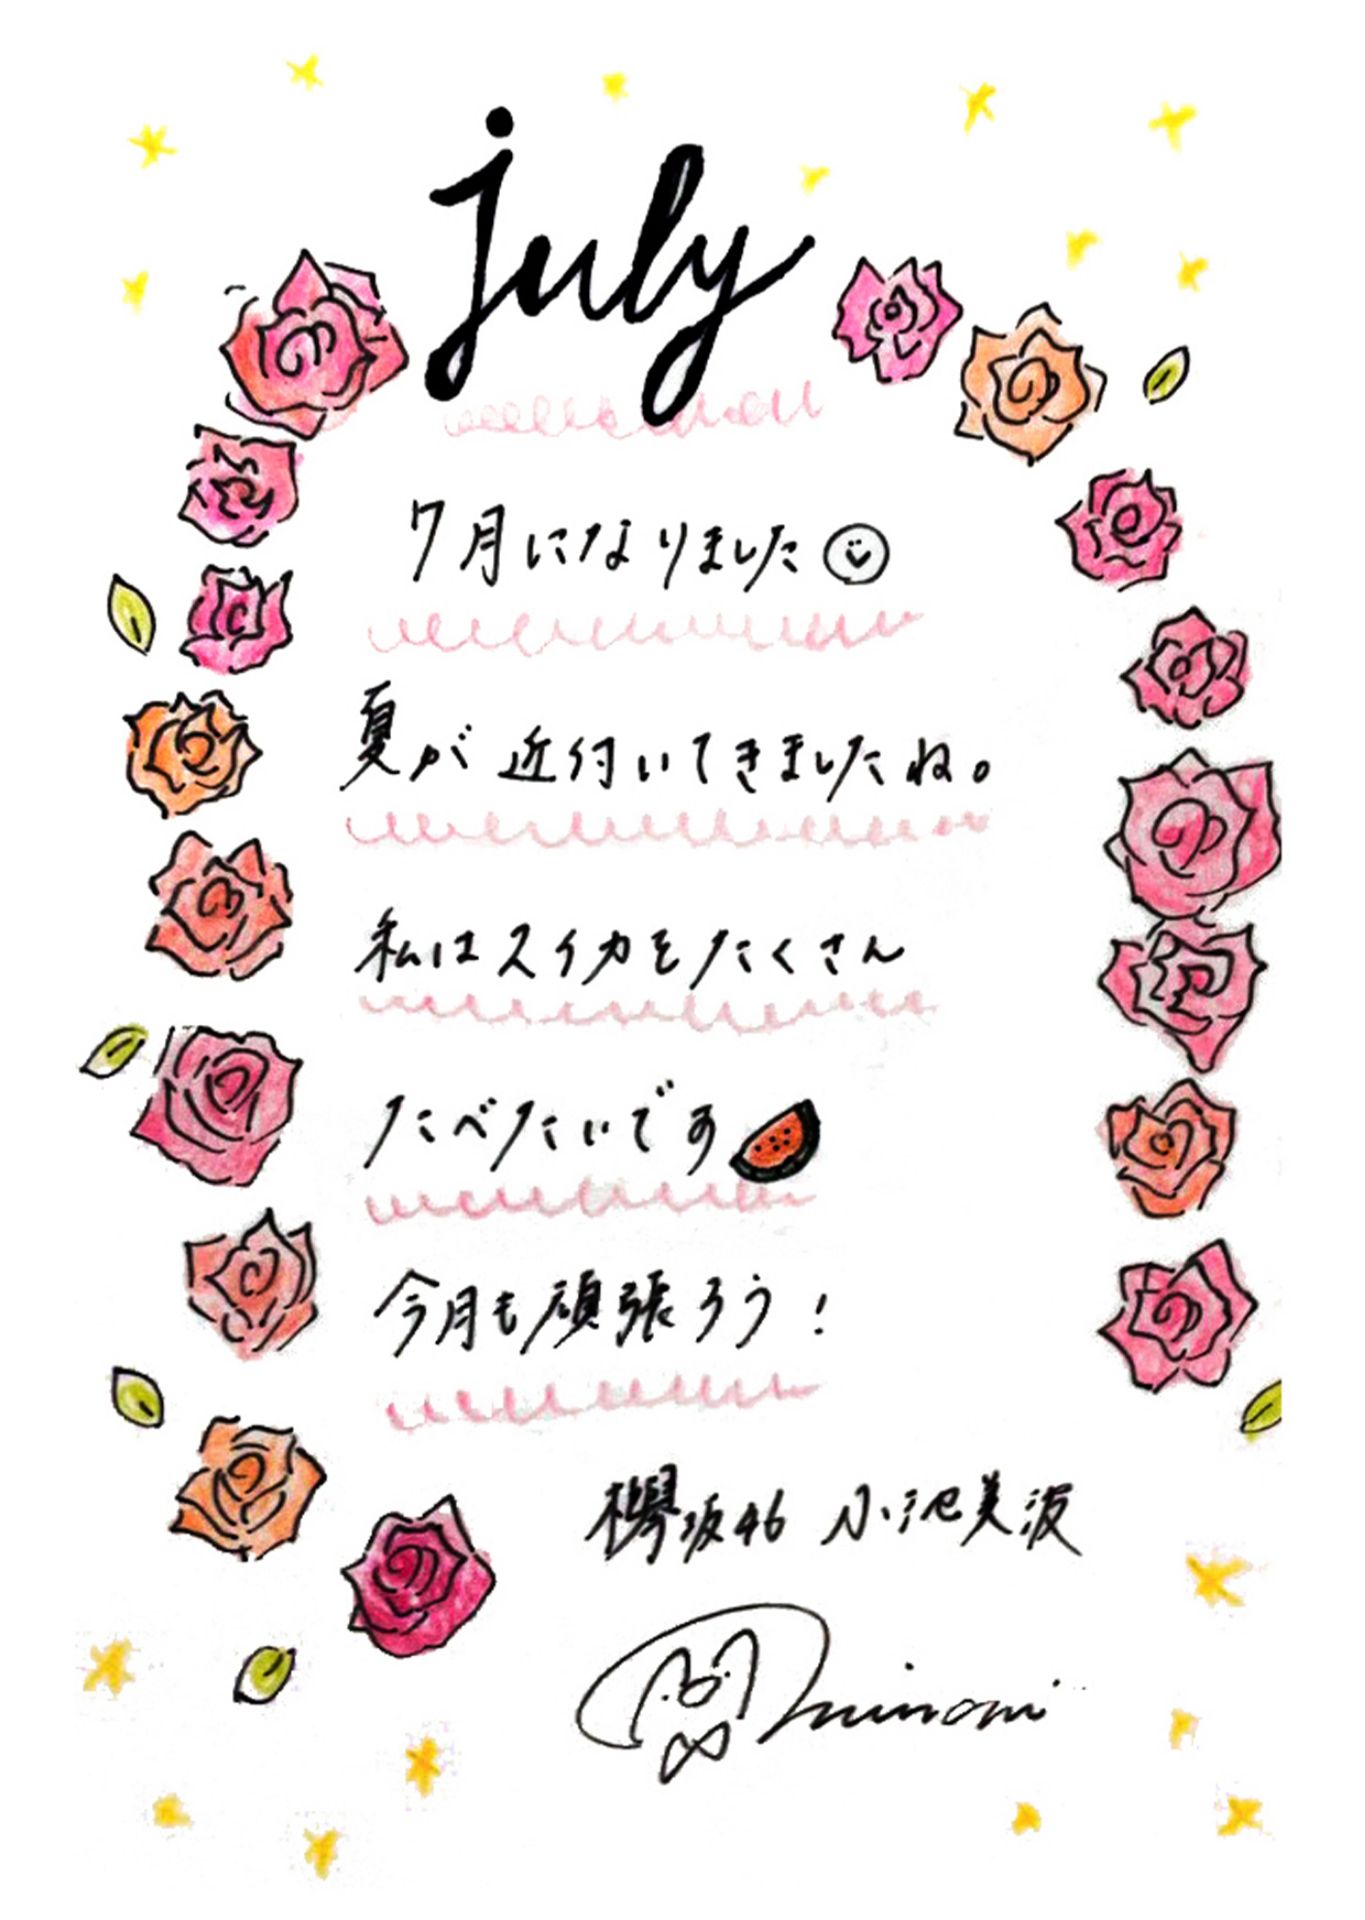 july
7月になりました
夏が近付いてきましたね。
私はスイカをたくさん
たべたいです
今月も頑張ろう!
欅坂46 小池美波
minami